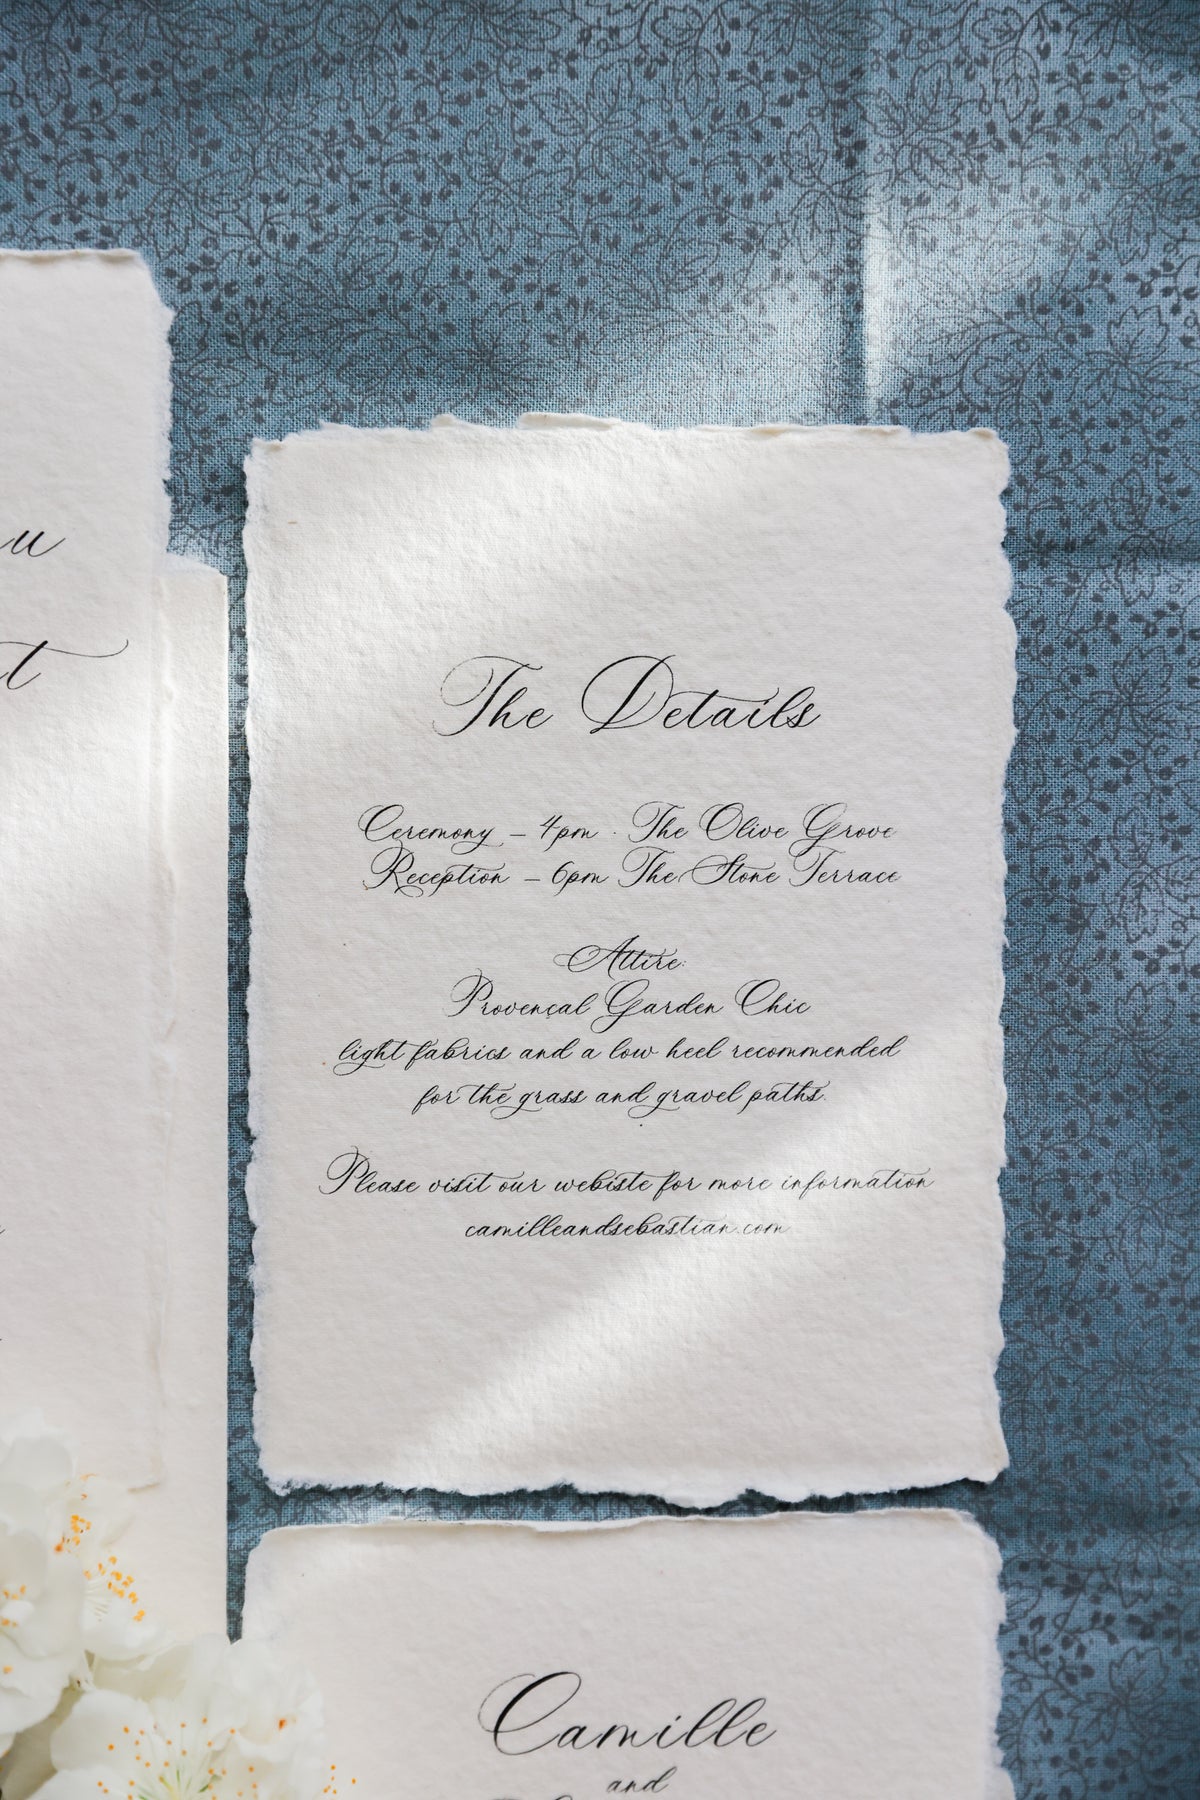 The Details
Ceremony – 4pm · The Olive Grove
Reception – 6pm The Stone Terrace
Attire:
Provençal Garden Chic
light fabrics and a low heel recommended
for the grass and gravel paths.
Please visit our webiste for more information
camilleandsebastian.com
Camille
and